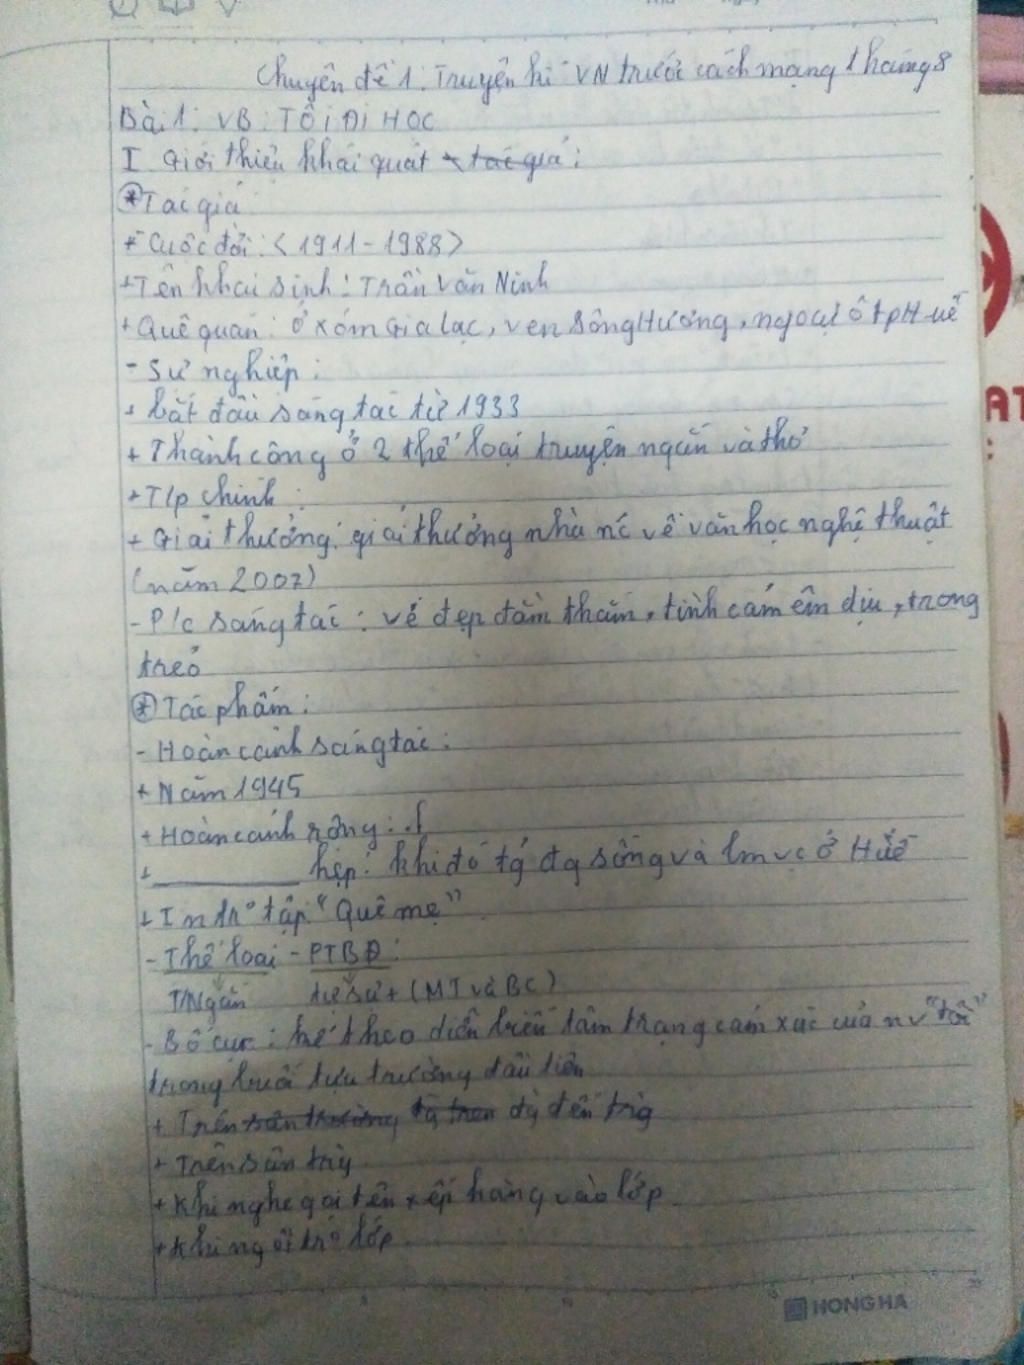 Chuyên đề 1: Truyện kí VN trước cách mạng tháng 8
Bài 1: VB: TÔI ĐI HỌC
I Giới thiệu khái quát tác giả:
* Tác giả
+ Cuộc đời: (1911-1988)
+ Tên khai sinh: Trần Văn Ninh
+ Quê quán: ở xóm Gia Lạc, ven sông Hương, ngoại ô tp Huế
- Sự nghiệp:
+ bắt đầu sáng tác từ 1933
+ Thành công ở 2 thể loại truyện ngắn và thơ
+ T/p chính:
+ Giải thưởng: giải thưởng nhà nc về văn học nghệ thuật
(năm 2007)
- P/c sáng tác: vẻ đẹp đằm thắm, tình cảm êm dịu, trong
trẻo
* Tác phẩm:
- Hoàn cảnh sáng tác:
+ Năm 1945
+ Hoàn cảnh rộng:
+ ________ hẹp: khi đó tg đg sống và lm vc ở Huế
+ In tr tập "Quê mẹ"
- Thể loại - PTBĐ:
T/Ngắn tự sự + (MT và BC)
- Bố cục: kể theo diễn biến tâm trạng cảm xúc của nv "tôi"
trong buổi tựu trường đầu tiên
+ Trên sân trường đg đến trg
+ Trên sân trg
+ Khi nghe gọi tên xếp hàng vào lớp
+ Khi ngồi trg lớp
HONG HA